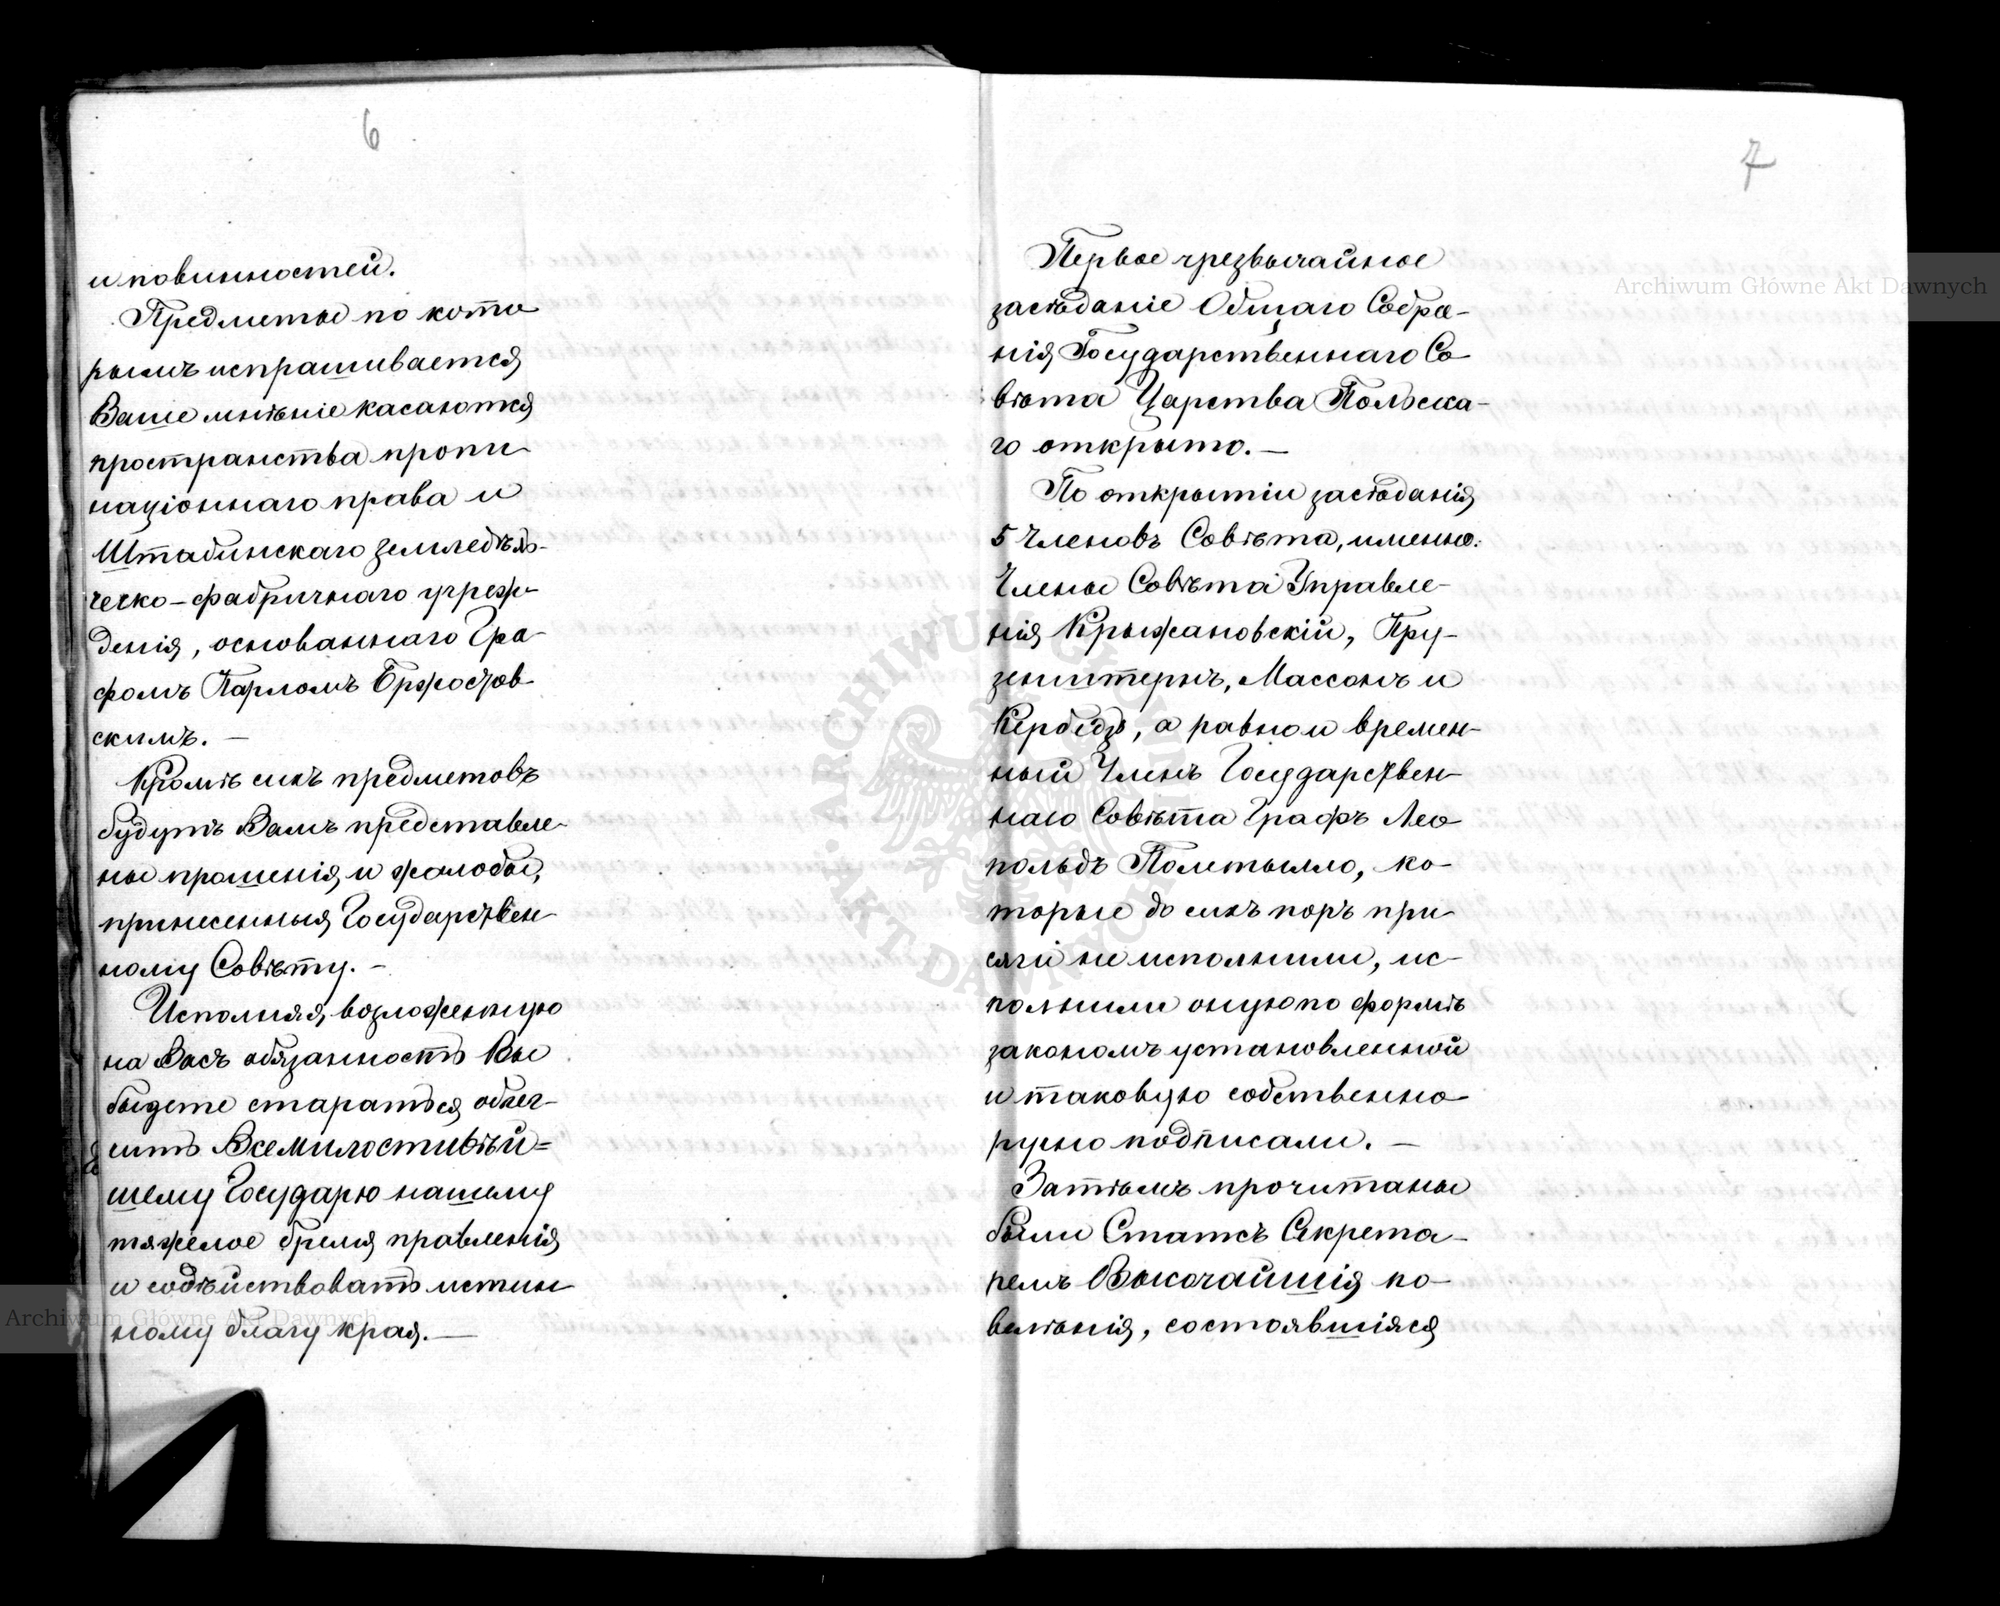 6
и повинностей.
Предметы по кото
рымъ испрашивается
Ваше мнѣніе касаются
пространства пропи-
націоннаго права и
Штабинскаго земледѣль-
ческо-фабричнаго учреж-
денія, основаннаго Гра-
фомъ Карломъ Бржостов-
скимъ. —
Кромѣ сихъ предметовъ
будутъ Вамъ представле-
ны прошенія и жалобы,
принесенныя Государствен-
ному Совѣту. –
Исполняя возложенную
на Васъ обязанность Вы
будете стараться облег-
чить Всемилостивѣй=
шему Государю нашему
тяжелое бремя правленія
и содѣйствовать истин-
ному благу края. —
7
Первое чрезвычайное
засѣданіе Общаго Собра-
нія Государственнаго Со-
вѣта Царства Польска-
го открыто. —
По открытіи засѣданія
5 Членовъ Совѣта, именно:
Члены Совѣта Управле-
нія Крыжановскій, Пру-
зенштернъ, Массонъ и
Кербедзъ, а равно и времен-
ный Членъ Государствен-
наго Совѣта Графъ Лео
польдъ Полетылло, ко-
торые до сихъ поръ при-
сяги не исполнили, ис-
полнили оную по формѣ
закономъ установленной
и таковую собственно-
ручно подписали. —
Затѣмъ прочитаны
были Статсъ Секрета-
ремъ Высочайшія по-
велѣнія, состоявшіяся
Archiwum Główne Akt Dawnych
Archiwum Główne Akt Dawnych
ARCHIWUM GŁÓWNE AKT DAWNYCH